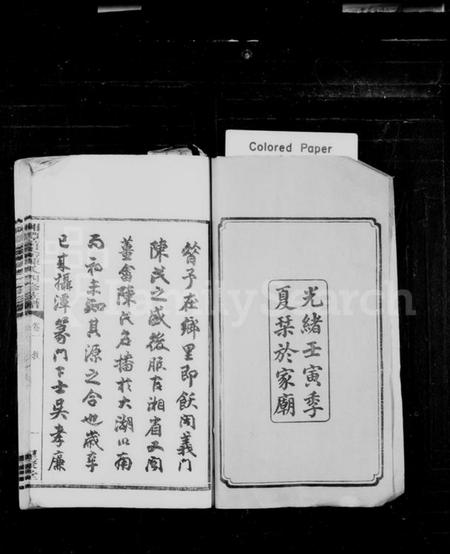 Colored Paper
光緒壬寅季
夏栞於家廟
昝子在鄉里即飫聞義門
陳氏之盛後服官湘省又聞
薑畬陳氏存播於大湖以南
而初未知其源之合也歲辛
巳來攝潭篆門下士吳孝廉
FamilySearch